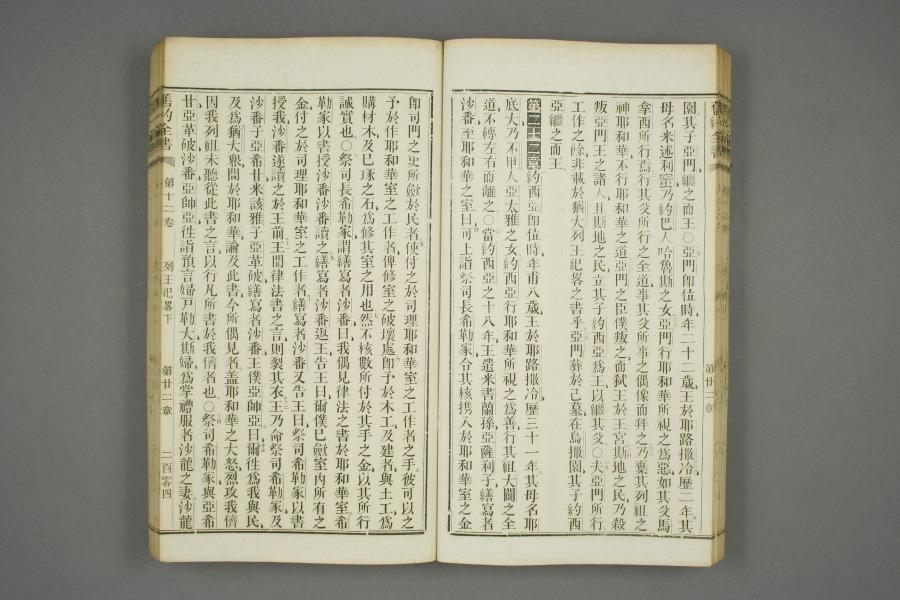 園其子亞門繼之而王○亞門卽位時年二十二歲王於耶路撒冷歷二年其
母名米述利密乃約巴人哈魯斯之女亞門行耶和華所視之爲惡如其父馬
拿西所行焉行其父所行之全道事其父所事之偶像而拜之乃棄其列祖之
神耶和華不行耶和華之道亞門之臣僕叛之而弒王於王宮其斯地之民乃殺
叛亞門王之諸人且斯地之民立其子約西亞爲王以繼其父○夫亞門所行
工作之餘非載於猶大列王紀畧之書乎亞門葬於己墓在烏撒園其子約西
亞繼之而王
第二十二章約西亞卽位時年甫八歲王於耶路撒冷歷三十一年其母名耶
底大乃不甲人亞太雅之女約西亞行耶和華所視之爲善行其祖大闢之全
道不轉左右而離之○當約西亞之十八年王遣米書蘭孫亞薩利子繕寫者
沙番至耶和華之室曰可上詣祭司長希勒家令其核携入於耶和華室之金
第廿二章
卽司門之吏所斂於民者使付之於司理耶和華室之工作者之手彼可以之
予於作耶和華室之工作者俾修室之破壞處卽予於木工及建者與土工爲
購材木及已琢之石爲修其室之用也然不核數所付於其手之金以其所行
誠實也○祭司長希勒家謂繕寫者沙番曰我偶見律法之書於耶和華室希
勒家以書授沙番沙番讀之繕寫者沙番返王告王曰爾僕已斂室內所有之
金付之於司理耶和華室之工作者繕寫者沙番又告王曰祭司希勒家以書
授我沙番遂讀之於王前王聞律法書之言則裂其衣王乃命祭司希勒家及
沙番子亞希廿米該雅子亞革破繕寫者沙番王僕亞師亞曰爾徃爲我與民
及爲猶大衆問於耶和華諭及此書今所偶見者蓋耶和華之大怒烈攻我儕
因我列祖未聽從此書之言以行凡所書於我儕者也○祭司希勒家與亞希
廿亞革破沙番亞師亞徃詣預言婦戶勒大斯婦爲掌禮服者沙龍之妻沙龍
舊約全書 第十二卷 列王紀畧下 第廿二章 二百零四